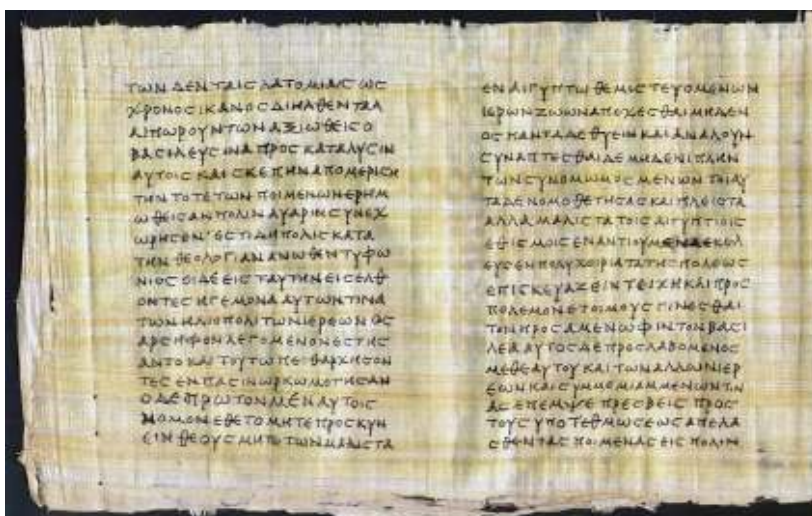 ΤΩΝ ΔΕΝ ΤΑΙΣ ΛΑΤΟΜΙΑΙΣ ΩΣ
ΧΡΟΝΟΣ ΙΚΑΝΟΣ ΔΙΗΛΘΕΝ ΤΑΛ
ΑΙΠΩΡΟΥΝΤΩΝ ΑΞΙΩΘΕΙΣ Ο
ΒΑΣΙΛΕΥΣ ΙΝΑ ΠΡΟΣ ΚΑΤΑΛΥΣΙΝ
ΑΥΤΟΙΣ ΚΑΙ ΣΚΕΠΗΝ ΑΠΟΜΕΡΙΣΗ
ΤΗΝ ΤΟΤΕ ΤΩΝ ΠΟΙΜΕΝΩΝ ΕΡΗΜ
ΩΘΕΙΣΑΝ ΠΟΛΙΝ ΑΥΑΡΙΝ ΣΥΝΕΧ
ΩΡΗΣΕΝ ΕΣΤΙ ΔΗ ΠΟΛΙΣ ΚΑΤΑ
ΤΗΝ ΘΕΟΛΟΓΙΑΝ ΑΝΩΘΕΝ ΤΥΦΩ
ΝΙΟΣ ΟΙ ΔΕ ΕΙΣ ΤΑΥΤΗΝ ΕΙΣΕΛΘ
ΟΝΤΕΣ ΗΓΕΜΟΝΑ ΑΥΤΩΝ ΤΙΝΑ
ΤΩΝ ΗΛΙΟΠΟΛΙΤΩΝ ΙΕΡΕΩΝ ΟΣ
ΑΡΣΗΦΟΝ ΛΕΓΟΜΕΝΟΝ ΕΣΤΗΣ
ΑΝΤΟ ΚΑΙ ΤΟΥΤΩ ΠΕΙΘΑΡΧΗΣΟΝ
ΤΕΣ ΕΝ ΠΑΣΙΝ ΩΡΚΩΜΟΤΗΣΑΝ
Ο ΔΕ ΠΡΩΤΟΝ ΜΕΝ ΑΥΤΟΙΣ
ΝΟΜΟΝ ΕΘΕΤΟ ΜΗΤΕ ΠΡΟΣΚΥΝ
ΕΙΝ ΘΕΟΥΣ ΜΗΤΕ ΤΩΝ ΜΑΛΙΣΤΑ
ΕΝ ΑΙΓΥΠΤΩ ΘΕΜΙΣΤΕΥΟΜΕΝΩΝ
ΙΕΡΩΝ ΖΩΩΝ ΑΠΕΧΕΣΘΑΙ ΜΗΔΕΝ
ΟΣ ΠΑΝΤΑ ΔΕ ΘΥΕΙΝ ΚΑΙ ΑΝΑΛΟΥΝ
ΣΥΝΑΠΤΕΣΘΑΙ ΔΕ ΜΗΔΕΝΙ ΠΛΗΝ
ΤΩΝ ΣΥΝΟΜΩΜΟΣΜΕΝΩΝ ΤΟΙΑΥ
ΤΑ ΔΕ ΝΟΜΟΘΕΤΗΣΑΣ ΚΑΙ ΠΛΕΙΣΤΑ
ΑΛΛΑ ΜΑΛΙΣΤΑ ΤΟΙΣ ΑΙΓΥΠΤΙΟΙΣ
ΕΘΙΣΜΟΙΣ ΕΝΑΝΤΙΟΥΜΕΝΑ ΕΚΕΛ
ΕΥΣΕΝ ΠΟΛΥΧΕΙΡΙΑ ΤΑ ΤΗΣ ΠΟΛΕΩΣ
ΕΠΙΣΚΕΥΑΖΕΙΝ ΤΕΙΧΗ ΚΑΙ ΠΡΟΣ
ΠΟΛΕΜΟΝ ΕΤΟΙΜΟΥΣ ΓΙΝΕΣΘΑΙ
ΤΟΝ ΠΡΟΣ ΑΜΕΝΩΦΙΝ ΤΟΝ ΒΑΣΙ
ΛΕΑ ΑΥΤΟΣ ΔΕ ΠΡΟΣΛΑΒΟΜΕΝΟΣ
ΜΕΘ ΕΑΥΤΟΥ ΚΑΙ ΤΩΝ ΑΛΛΩΝ ΙΕΡ
ΕΩΝ ΚΑΙ ΣΥΜΜΕΜΙΑΜΜΕΝΩΝ ΤΙΝ
ΑΣ ΕΠΕΜΨΕ ΠΡΕΣΒΕΙΣ ΠΡΟΣ
ΤΟΥΣ ΥΠΟ ΤΕΘΜΩΣΕΩΣ ΑΠΕΛΑ
ΣΘΕΝΤΑΣ ΠΟΙΜΕΝΑΣ ΕΙΣ ΠΟΛΙΝ